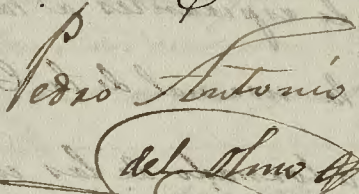 Pedro Antonio
del Olmo